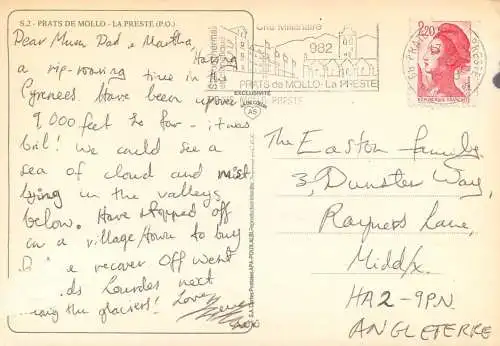 S.2 - PRATS DE MOLLO - LA PRESTE (P.O.)
Dear Mum Dad & Martha, Having
a rip-roaring time in the
Pyrenees. Have been up over
9,000 feet so far - it was
bril! We could see a
sea of cloud and mist
lying in the valleys
below. Have stopped off
in a village/town to buy
& recover. Off
Lourdes next
the glaciers! Love
Cité Millénaire
982
PRATS de MOLLO-La PRESTE
EXCLUSIVITÉ
2,20
RÉPUBLIQUE FRANÇAISE
The Easton family
3, Dunster Way,
Rayners Lane,
Middx.
HA2-9PN.
ANGLETERRE